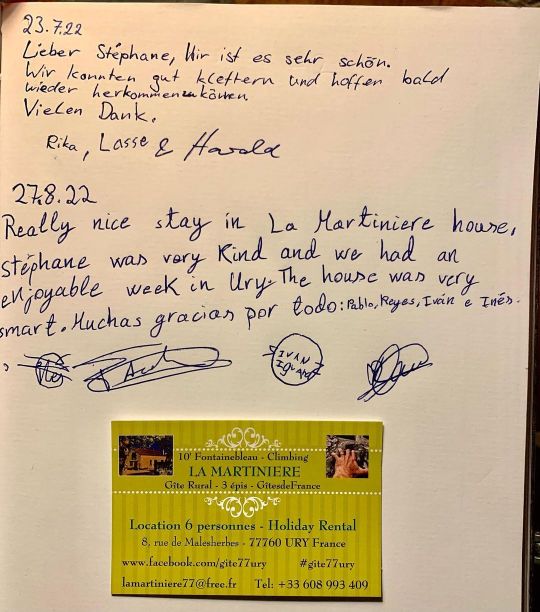 23.7.22
Lieber Stéphane, Hir ist es sehr schön.
Wir konnten gut kleftern und hoffen bald
wieder herkommen zu können.
Vielen Dank.
Rika, Lasse & Harold
27.8.22
Really nice stay in La Martiniere house,
Stéphane was very kind and we had an
enjoyable week in Ury. The house was very
smart. Muchas gracias por todo: Pablo, Reyes, Iván e Inés.
IVÁN
10' Fontainebleau - Climbing
LA MARTINIERE
Gîte Rural - 3 épis - GîtesdeFrance
Location 6 personnes - Holiday Rental
8, rue de Malesherbes - 77760 URY France
www.facebook.com/gite77ury #gite77ury
lamartiniere77@free.fr Tel: +33 608 993 409